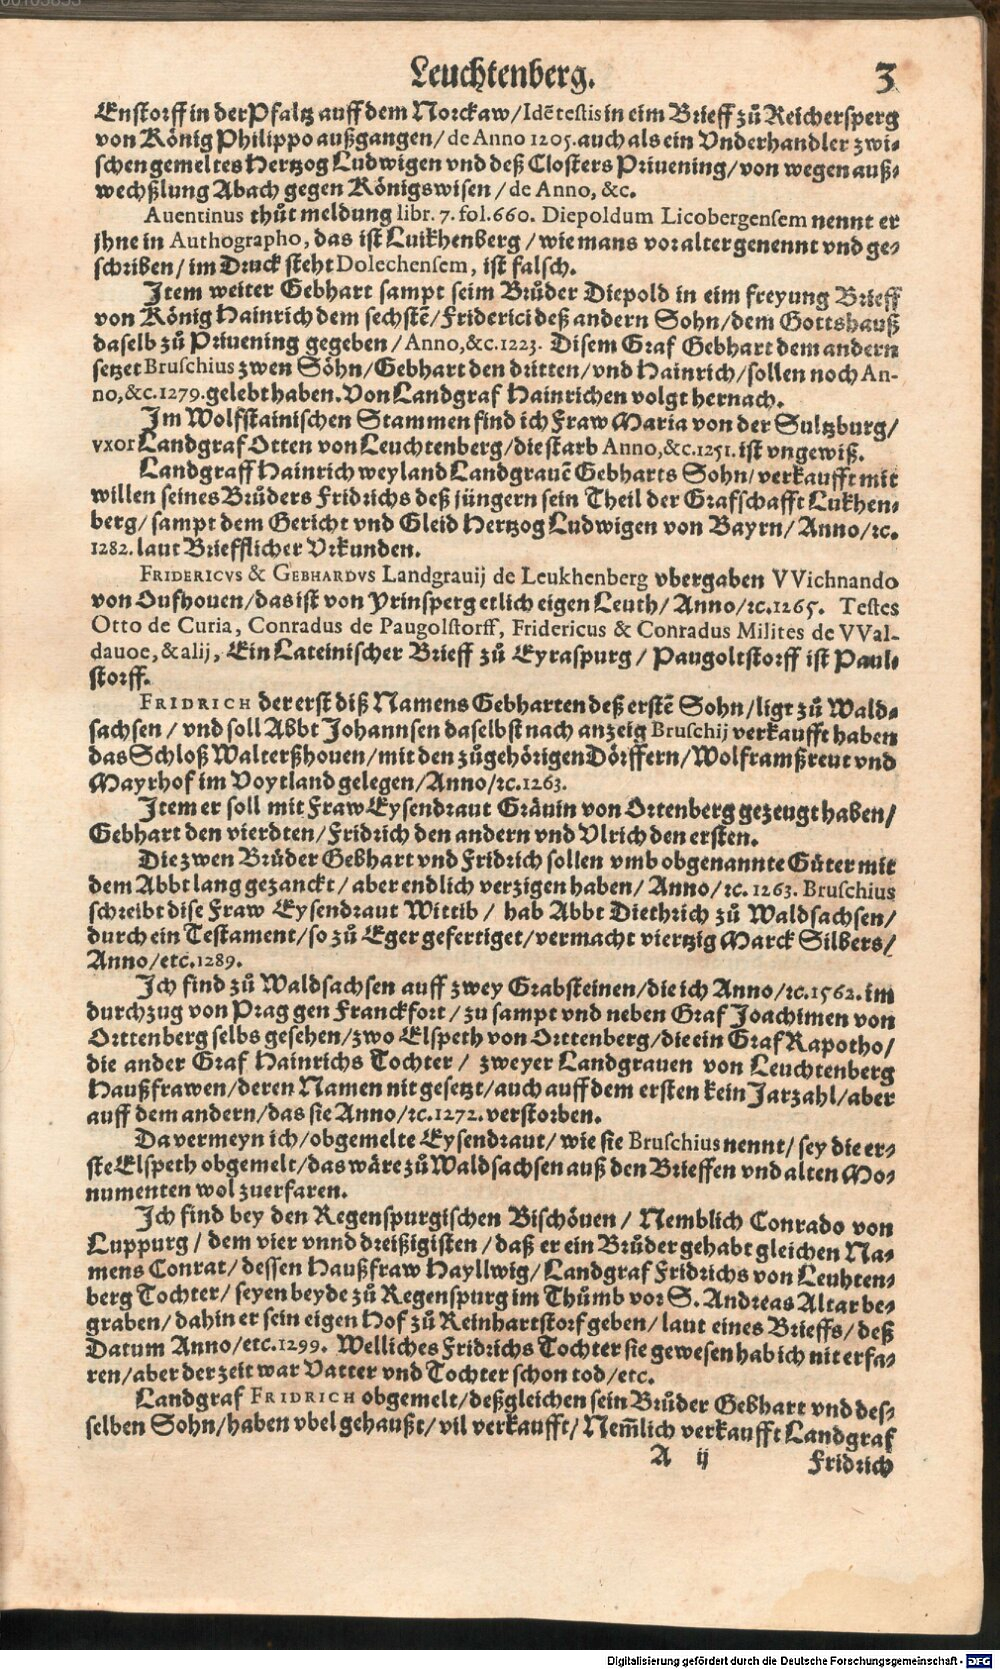 Leuchtenberg. 3
Enstorff in der Pfaltz auff dem Norckaw/ Idē testis in eim Brieff zů Reichersperg
von König Philippo außgangen/ de Anno 1205. auch als ein Vnderhandler zwi-
schen gemeltes Hertzog Ludwigen vnd deß Closters Priuening/ von wegen auß-
wechßlung Abach gegen Königswisen/ de Anno, &c.
Auentinus thůt meldung libr. 7. fol. 660. Diepoldum Licobergensem nennt er
jhne in Authographo, das ist Luikhenberg/ wie mans vor alter genennt vnd ge-
schriben/ im Druck steht Dolechensem, ist falsch.
Item weiter Gebhart sampt seim Brůder Diepold in eim freyung Brieff
von König Hainrich dem sechstē/ Friderici deß andern Sohn/ dem Gottshauß
daselb zů Priuening gegeben/ Anno, &c. 1223. Disem Graf Gebhart dem andern
setzet Bruschius zwen Söhn/ Gebhart den dritten/ vnd Hainrich/ sollen noch An-
no, &c. 1279. gelebt haben. Von Landgraf Hainrichen volgt hernach.
Im Wolfstainischen Stammen find ich Fraw Maria von der Sultzburg/
vxor Landgraf Otten von Leuchtenberg/ die starb Anno, &c. 1251. ist vngewiß.
Landgraff Hainrich weyland Landgrauē Gebharts Sohn/ verkaufft mit
willen seines Brůders Fridrichs deß jüngern sein Theil der Grafschafft Lukhen-
berg/ sampt dem Gericht vnd Gleid Hertzog Ludwigen von Bayrn/ Anno/ ꝛc.
1282. laut Briefflicher Vrkunden.
FRIDERICVS & GEBHARDVS Landgrauij de Leukhenberg vbergaben VVichnando
von Oufhouen/ das ist von Yrinsperg etlich eigen Leuth/ Anno/ ꝛc. 1265. Testes
Otto de Curia, Conradus de Paugolstorff, Fridericus & Conradus Milites de VVal-
dauoe, & alij, Ein Lateinischer Brieff zů Eyraspurg/ Paugoltstorff ist Paul-
storff.
FRIDRICH der erst diß Namens Gebharten deß erstē Sohn/ ligt zů Wald-
sachsen/ vnd soll Abbt Johannsen daselbst nach anzeig Bruschij verkaufft haben
das Schloß Walterßhouen/ mit den zůgehörigen Dörffern/ Wolframßreut vnd
Mayrhof im Voytland gelegen/ Anno/ ꝛc. 1263.
Item er soll mit Fraw Eysendraut Grävin von Ortenberg gezeugt haben/
Gebhart den vierdten/ Fridrich den andern vnd Vlrich den ersten.
Die zwen Brůder Gebhart vnd Fridrich sollen vmb obgenannte Güter mit
dem Abbt lang gezanckt/ aber endlich verzigen haben/ Anno/ ꝛc. 1263. Bruschius
schreibt dise Fraw Eysendraut Wittib/ hab Abbt Diethrich zů Waldsachsen/
durch ein Testament/ so zů Eger gefertiget/ vermacht viertzig Marck Silbers/
Anno/ etc. 1289.
Ich find zů Waldsachsen auff zwey Grabsteinen/ die ich Anno/ ꝛc. 1562. im
durchzug von Prag gen Franckfort/ zu sampt vnd neben Graf Joachimen von
Orttenberg selbs gesehen/ zwo Elspeth von Orttenberg/ die ein Graf Rapotho/
die ander Graf Hainrichs Tochter/ zweyer Landgrauen von Leuchtenberg
Haußfrawen/ deren Namen nit gesetzt/ auch auff dem ersten kein Jarzahl/ aber
auff dem andern/ das sie Anno/ ꝛc. 1272. verstorben.
Da vermeyn ich/ obgemelte Eysendraut/ wie sie Bruschius nennt/ sey die er-
ste Elspeth obgemelt/ das wäre zů Waldsachsen auß den Brieffen vnd alten Mo-
numenten wol zuerfaren.
Ich find bey den Regenspurgischen Bischöuen/ Nemblich Conrado von
Luppurg/ dem vier vnnd dreißigisten/ daß er ein Brůder gehabt gleichen Na-
mens Conrat/ dessen Haußfraw Hayllwig/ Landgraf Fridrichs von Leuhten-
berg Tochter/ seyen beyde zů Regenspurg im Thůmb vor S. Andreas Altar be-
graben/ dahin er sein eigen Hof zů Reinhartstorf geben/ laut eines Brieffs/ deß
Datum Anno/ etc. 1299. Welliches Fridrichs Tochter sie gewesen hab ich nit erfa-
ren/ aber der zeit war Vatter vnd Tochter schon tod/ etc.
Landgraf FRIDRICH obgemelt/ deßgleichen sein Brůder Gebhart vnd des-
selben Sohn/ haben vbel gehaußt/ vil verkaufft/ Nem̄lich verkaufft Landgraf
A ij Fridrich
Digitalisierung gefördert durch die Deutsche Forschungsgemeinschaft - DFG